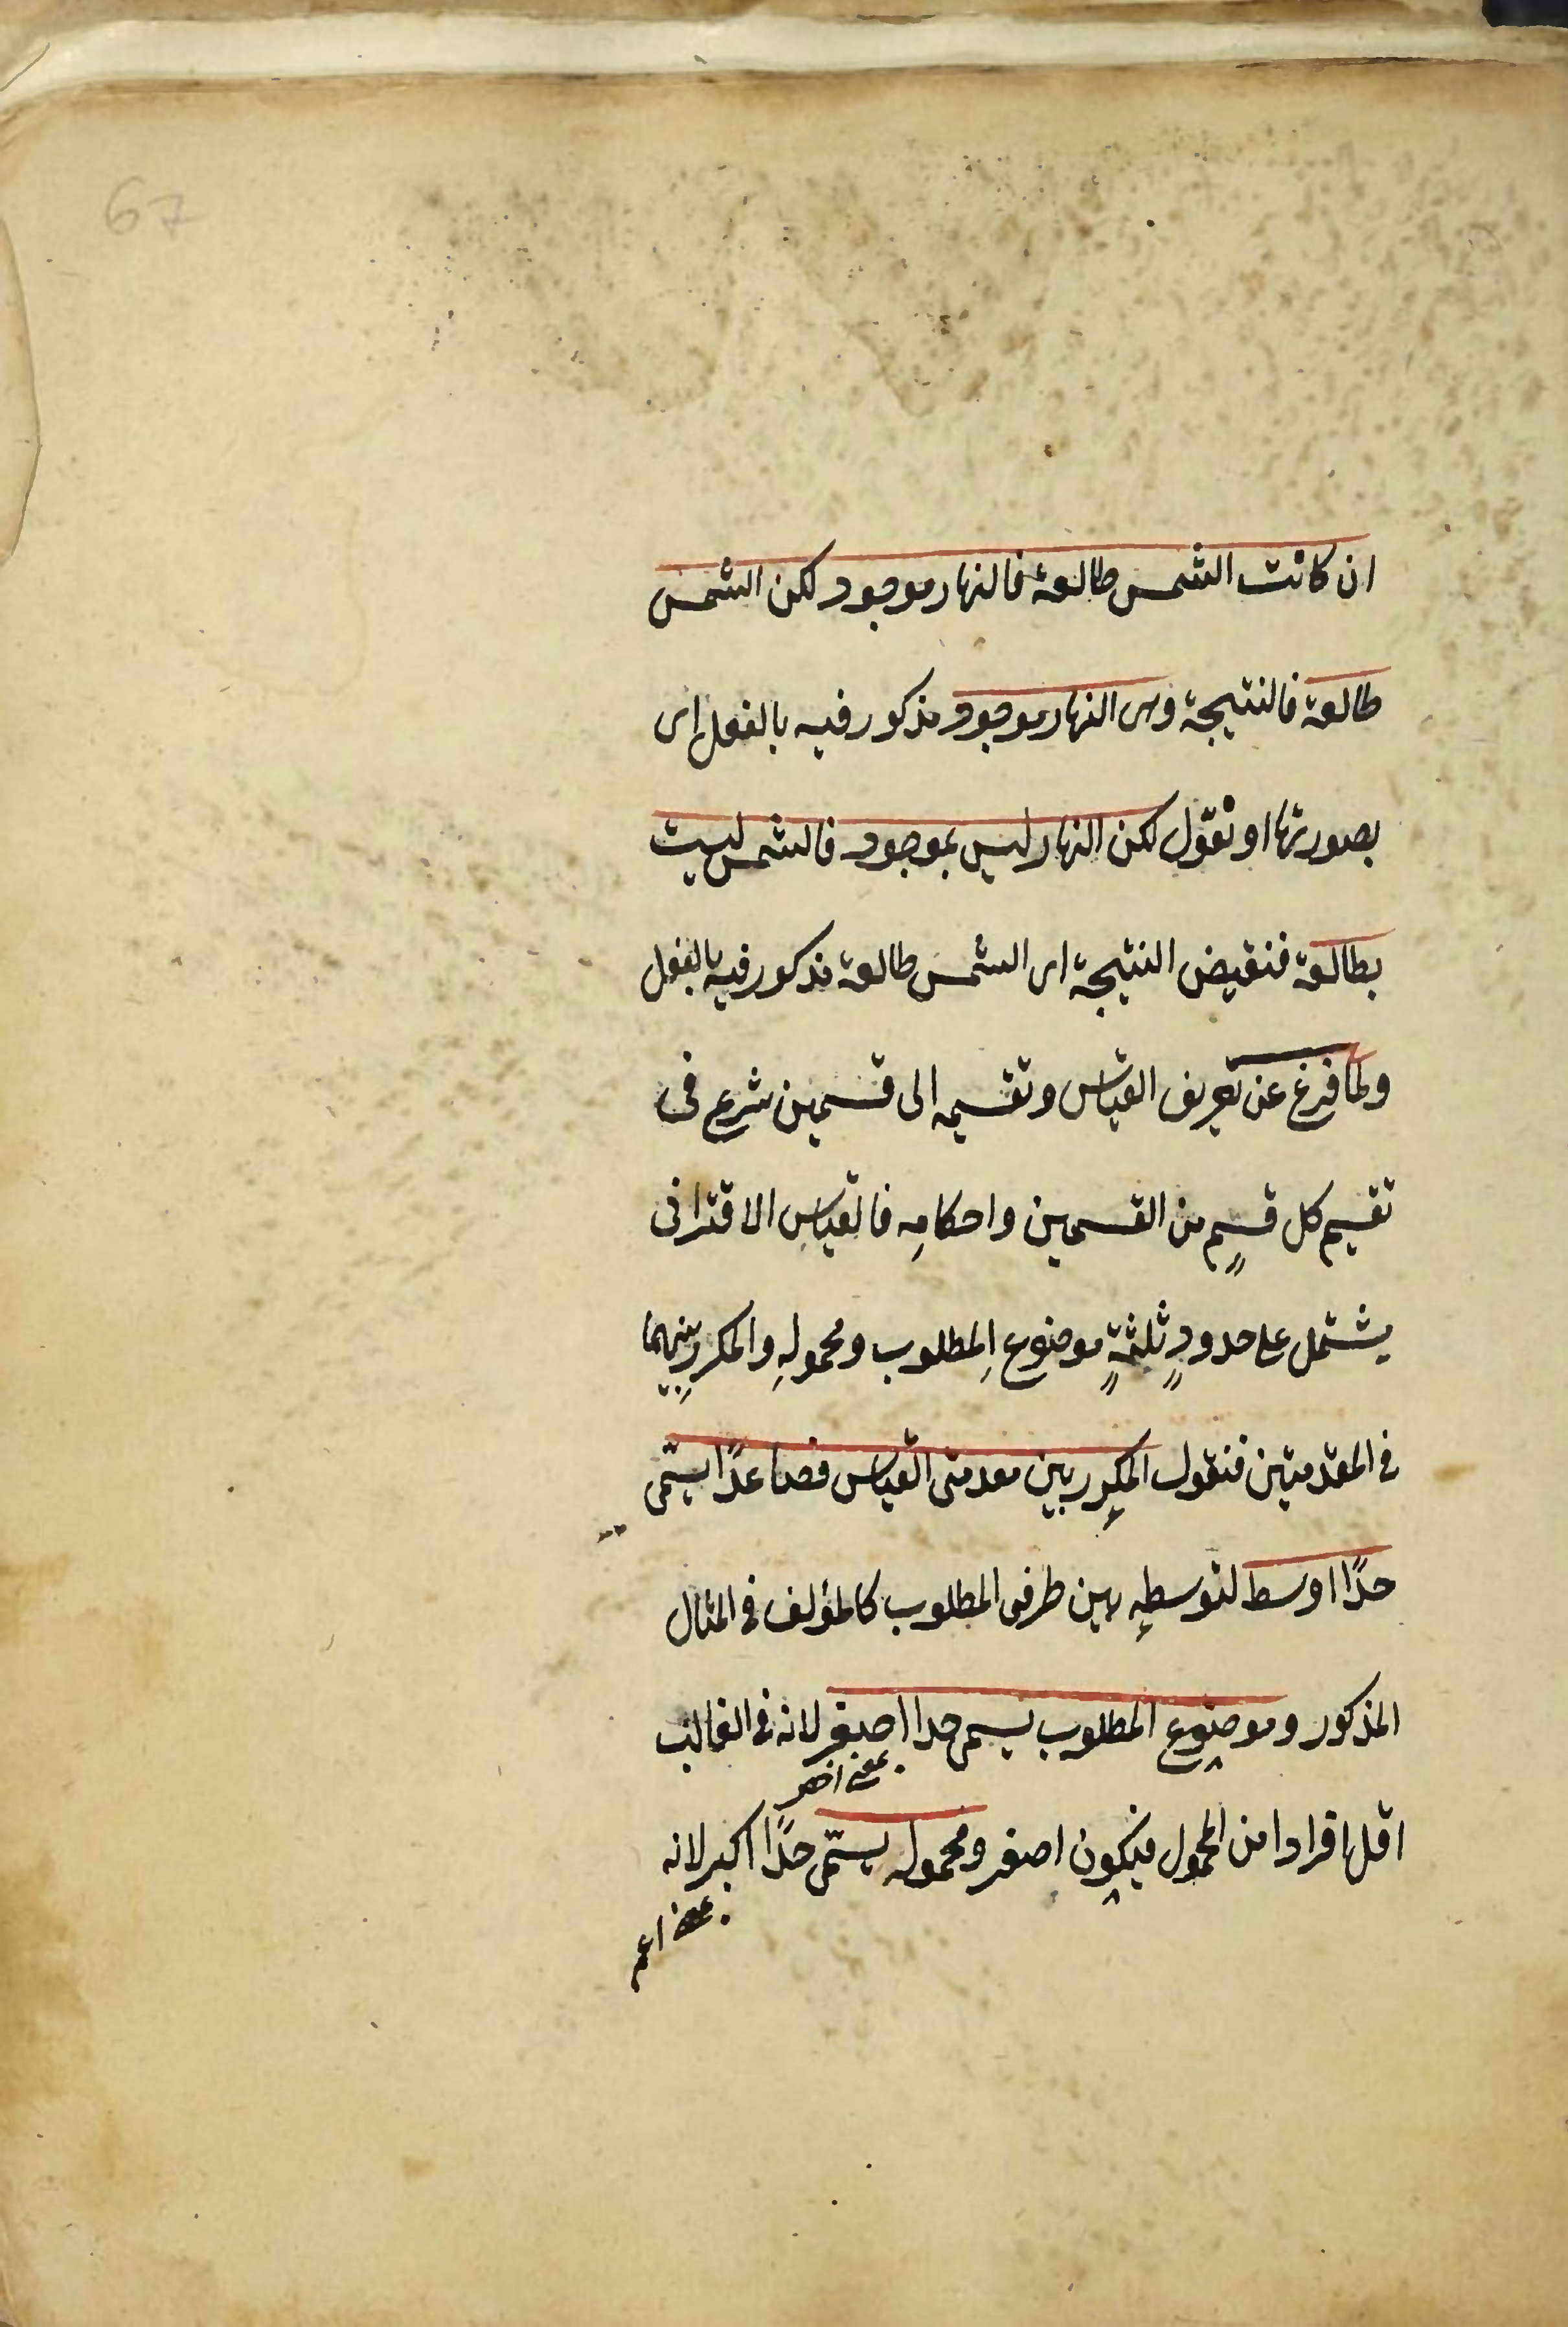 67
ان كانت الشمس طالعة فالنهار موجود لكن الشمس
طالعة فالنتيجة وهى النهار موجود مذكور فيه بالفعل اى
بصورتها او نقول لكن النهار ليس بموجود فالشمس ليست
بطالعة فنقيض النتيجة اى الشمس طالعة مذكور فيه بالفعل
ولما فرغ عن تعريف القياس وتقسيمه الى قسمين شرع فى
تقسيم كل قسمٍ من القسمين واحكامِه فالقياس الاقترانى
يشتمل على حدودٍ ثلثةٍ موضوعِ المطلوب ومحمولِه والمكررِ بينهما
فى المقدمتين فنقول المكرر بين مقدمتى القياس فصاعدًا يسمّى
حدًا اوسط لتوسطِه بين طرفى المطلوب كالمؤلف فى المثال
المذكور وموضوع المطلوب يسمى حدا اصغر لانه فى الغالب
بمعنى اخص
اقل افرادا من المحمول فيكون اصغر ومحموله يسمّى حدًا اكبر لانه
بمعنى اعم